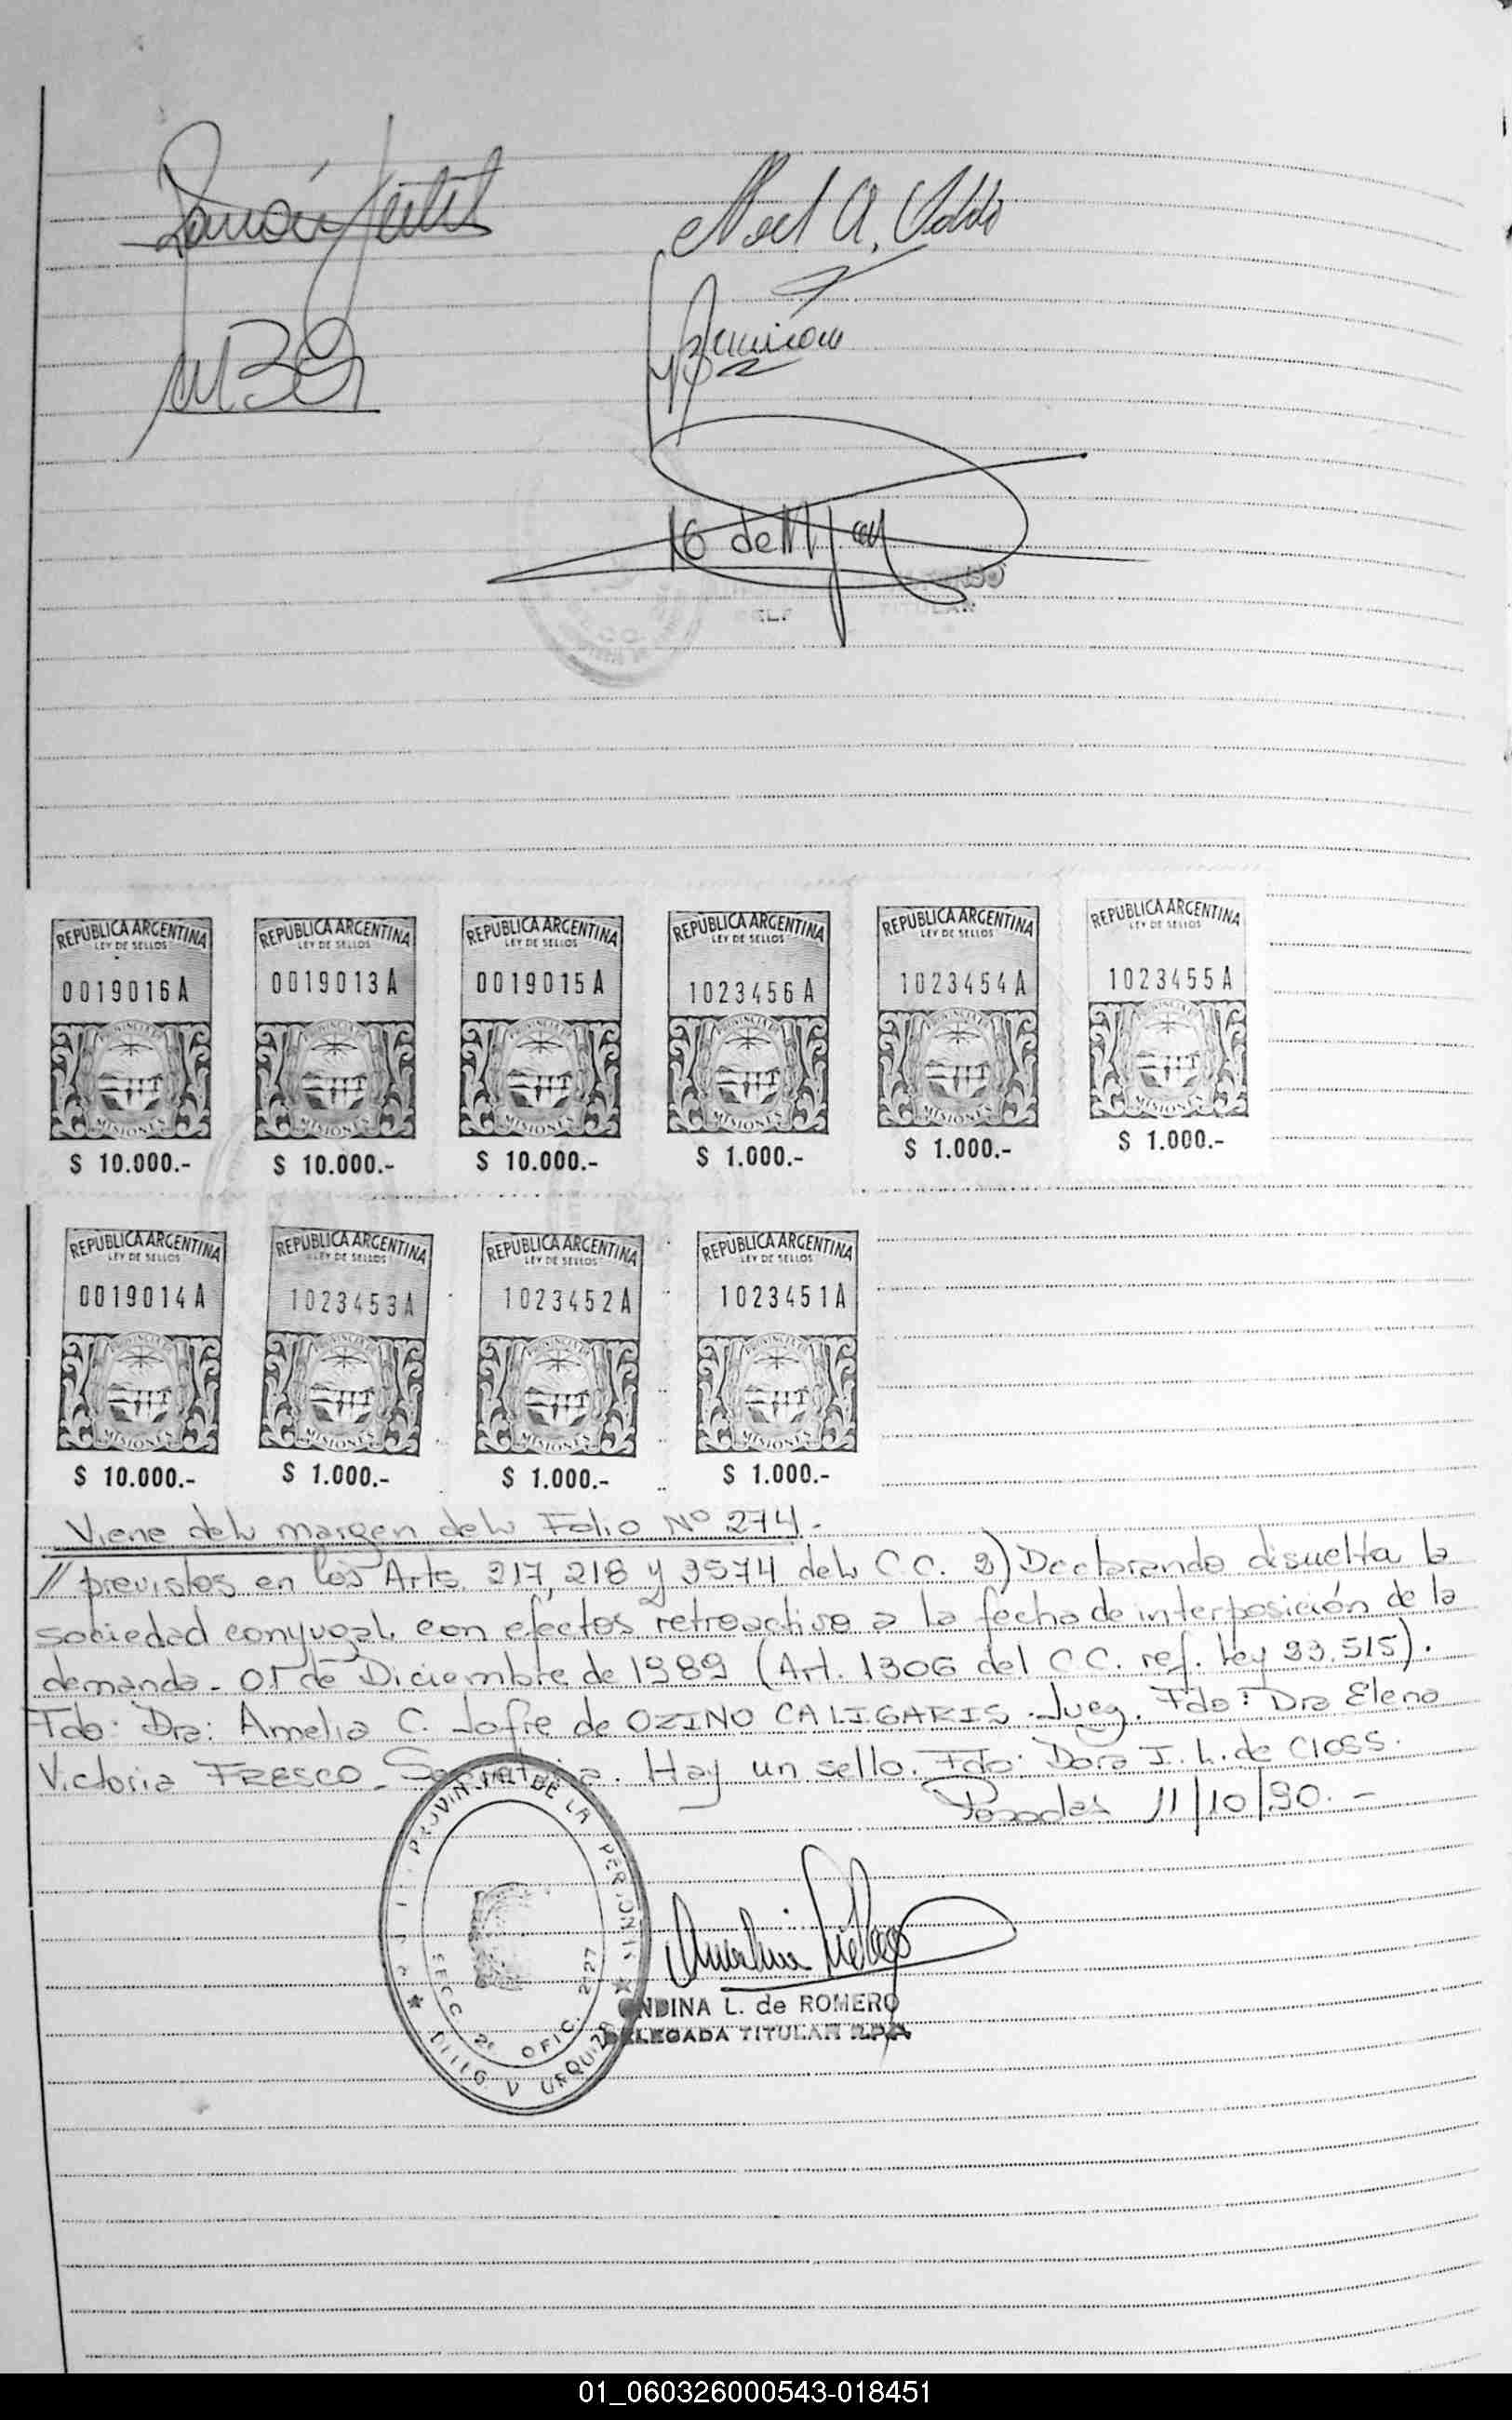 Noel A.
REPUBLICA ARGENTINA REPUBLICA ARGENTINA REPUBLICA ARGENTINA REPUBLICA ARGENTINA REPUBLICA ARGENTINA REPUBLICA ARGENTINA
LEY DE SELLOS LEY DE SELLOS LEY DE SELLOS LEY DE SELLOS LEY DE SELLOS LEY DE SELLOS
0019016A 0019013A 0019015A 1023456A 1023454A 1023455A
MISIONES MISIONES MISIONES MISIONES MISIONES MISIONES
$ 10.000.- $ 10.000.- $ 10.000.- $ 1.000.- $ 1.000.- $ 1.000.-
REPUBLICA ARGENTINA REPUBLICA ARGENTINA REPUBLICA ARGENTINA REPUBLICA ARGENTINA
LEY DE SELLOS LEY DE SELLOS LEY DE SELLOS LEY DE SELLOS
0019014A 1023453A 1023452A 1023451A
MISIONES MISIONES MISIONES MISIONES
$ 10.000.- $ 1.000.- $ 1.000.- $ 1.000.-
Viene del margen del Folio Nº 274.-
// previstos en los Arts. 217, 218 y 3574 del C.C. 2) Declarando disuelta la
sociedad conyugal con efectos retroactivo a la fecha de interposición de la
demanda - 01 de Diciembre de 1989 (Art. 1306 del C.C. ref. Ley 23.515).
Fdo: Dra: Amelia C. Jofre de OZINO CALIGARIS. Juez. Fdo: Dra Elena
Victoria FRESCO - Secretaria. Hay un sello. Fdo: Dora I. L. de Closs.
Posadas 11/10/90.-
PROVINCIAL DE LA PER
OFIC. 2-27
URQUIZA
ONDINA L. de ROMERO
DELEGADA TITULAR R.P.P.
01_060326000543-018451